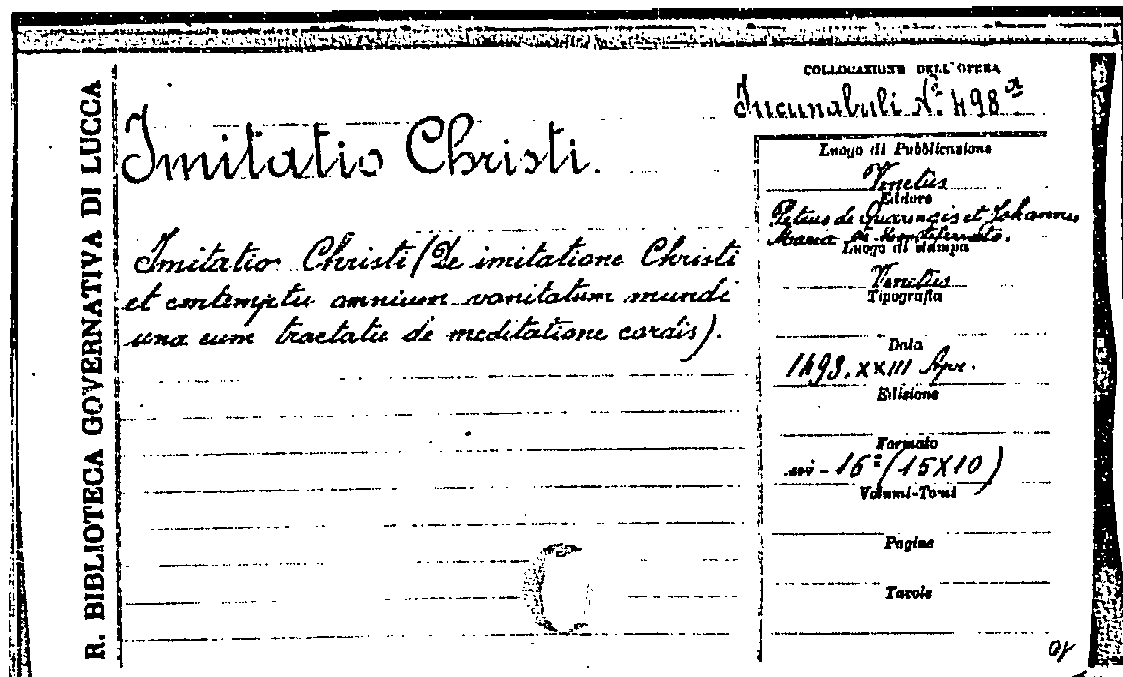 R. BIBLIOTECA GOVERNATIVA DI LUCCA
Imitatio Christi.
Imitatio Christi (De imitatione Christi
et contemptu omnium vanitatum mundi
una cum tractatu de meditatione cordis).
COLLOCAZIONE DELL'OPERA
Incunabuli N.° 498 a
Luogo di Pubblicazione
Venetiis
Editore
Petrus de Quarengiis et Johannes
Maria de Monteferrato.
Luogo di stampa
Venetiis
Tipografia
Data
1493. XXIII Apr.
Edizione
Formato
16° (15X10)
Volumi-Tomi
Pagine
Tavole